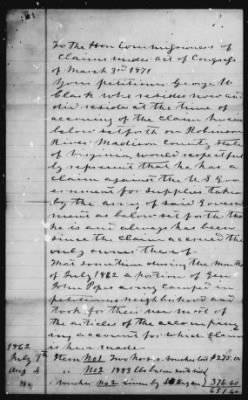 To the Hon Commissioners of
Claims under act of Congress
of March 3rd 1871
Your petitioner George W
Clark who resides now and
did reside at the time of
accruing of the claim herein
below set forth on Robinson
River Madison County State
of Virginia would respectfully
represent that he has a
claim against the U.S. Gov
ernment for supplies taken
by the army of said Govern
ment as below set forth that
he is and always has been
since the claim accrued the
only owner thereof
That sometime during the month
of July 1862 a portion of Gen
John Popes army camped in
petitioners neighborhood and
took for their use most of
the articles of the accompany
ing account for which claim
is here made
1862
July Item No 1 Two voucher lost $275.00
Aug 4 " No 2 1988 lbs bacon
voucher No 2 given by 376.60